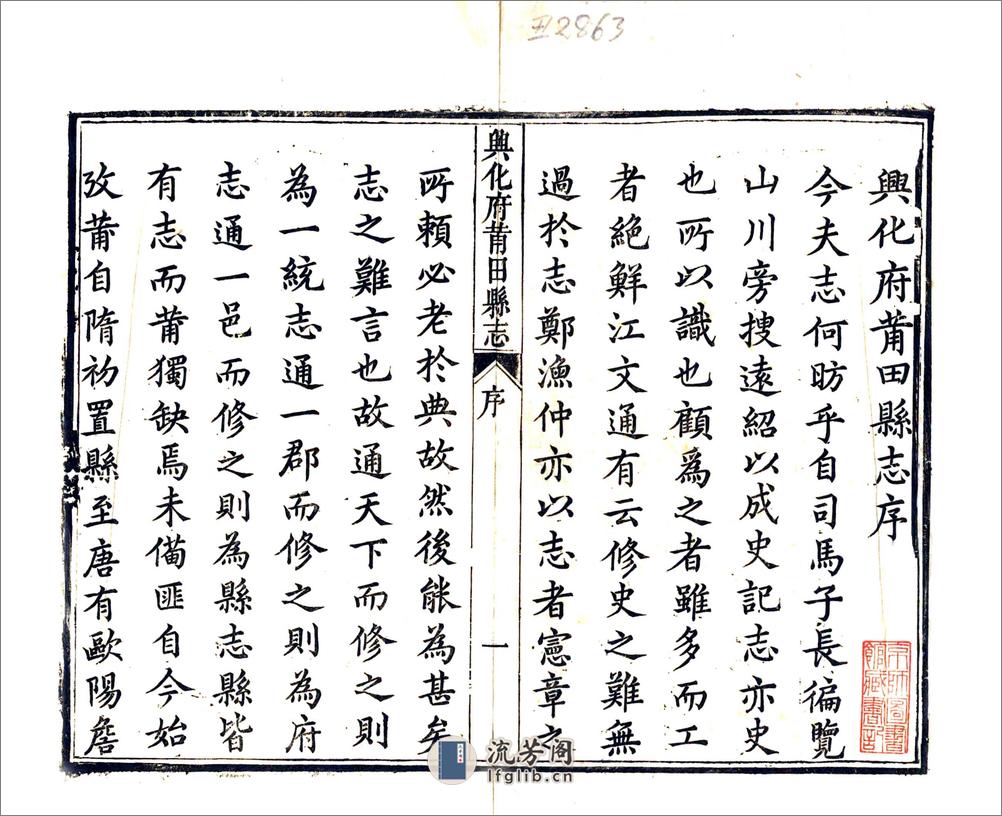 興化府莆田縣志序
今夫志何昉乎自司馬子長徧覽
山川旁搜遠紹以成史記志亦史
也所以識也顧為之者雖多而工
者絕鮮江文通有云修史之難無
過於志鄭漁仲亦以志者憲章之
興化府莆田縣志 序 一
所賴必老於典故然後能為甚矣
志之難言也故通天下而修之則
為一統志通一郡而修之則為府
志通一邑而修之則為縣志縣皆
有志而莆獨缺焉未備匪自今始
攷莆自隋初置縣至唐有歐陽詹
京師圖書
館藏書記
2863
流芳阁
lfglib.cn